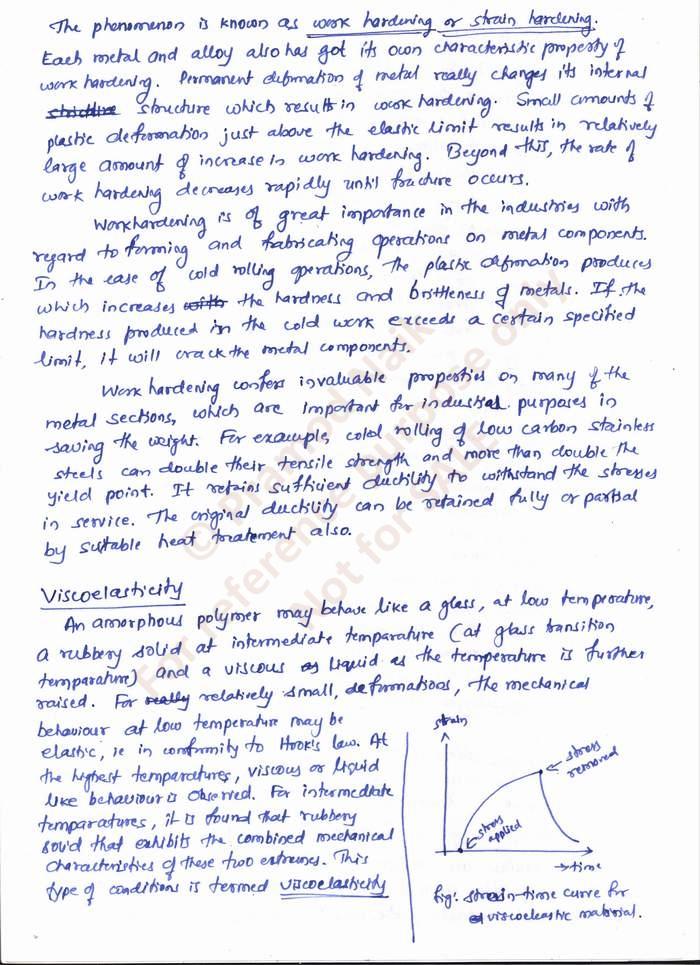 The phenomenon is known as work hardening or strain hardening.
Each metal and alloy also has got its own characteristic property of
work hardening. Permanent deformation of metal really changes its internal
structure which results in work hardening. Small amounts of
plastic deformation just above the elastic limit results in relatively
large amount of increase in work hardening. Beyond this, the rate of
work hardening decreases rapidly until fracture occurs.
Workhardening is of great importance in the industries with
regard to forming and fabricating operations on metal components.
In the case of cold rolling operations, the plastic deformation produces
which increases with the hardness and brittleness of metals. If the
hardness produced in the cold work exceeds a certain specified
limit, it will crack the metal components.
Work hardening confers invaluable properties on many of the
metal sections, which are important for industrial purposes in
saving the weight. For example, cold rolling of low carbon stainless
steels can double their tensile strength and more than double the
yield point. It retains sufficient ductility to withstand the stresses
in service. The original ductility can be retained fully or partial
by suitable heat treatement also.
Viscoelasticity
An amorphous polymer may behave like a glass, at low temperature,
a rubbery solid at intermediate temparature (at glass transition
temparature) and a viscous liquid as the temperature is further
raised. For really relatively small, deformations, the mechanical
behaviour at low temperature may be
elastic, ie in conformity to Hook's law. At
the highest temparatures, viscous or liquid
like behaviour is observed. For intermediate
temparatures, it is found that rubbery
solid that exhibits the combined mechanical
characteristics of these two extremes. This
type of conditions is termed viscoelasticity
strain
stress
removed
stress
applied
→time
Fig: strain-time curve for
viscoelastic material.
© Pramod Naik
For reference purpose only
Not for SALE